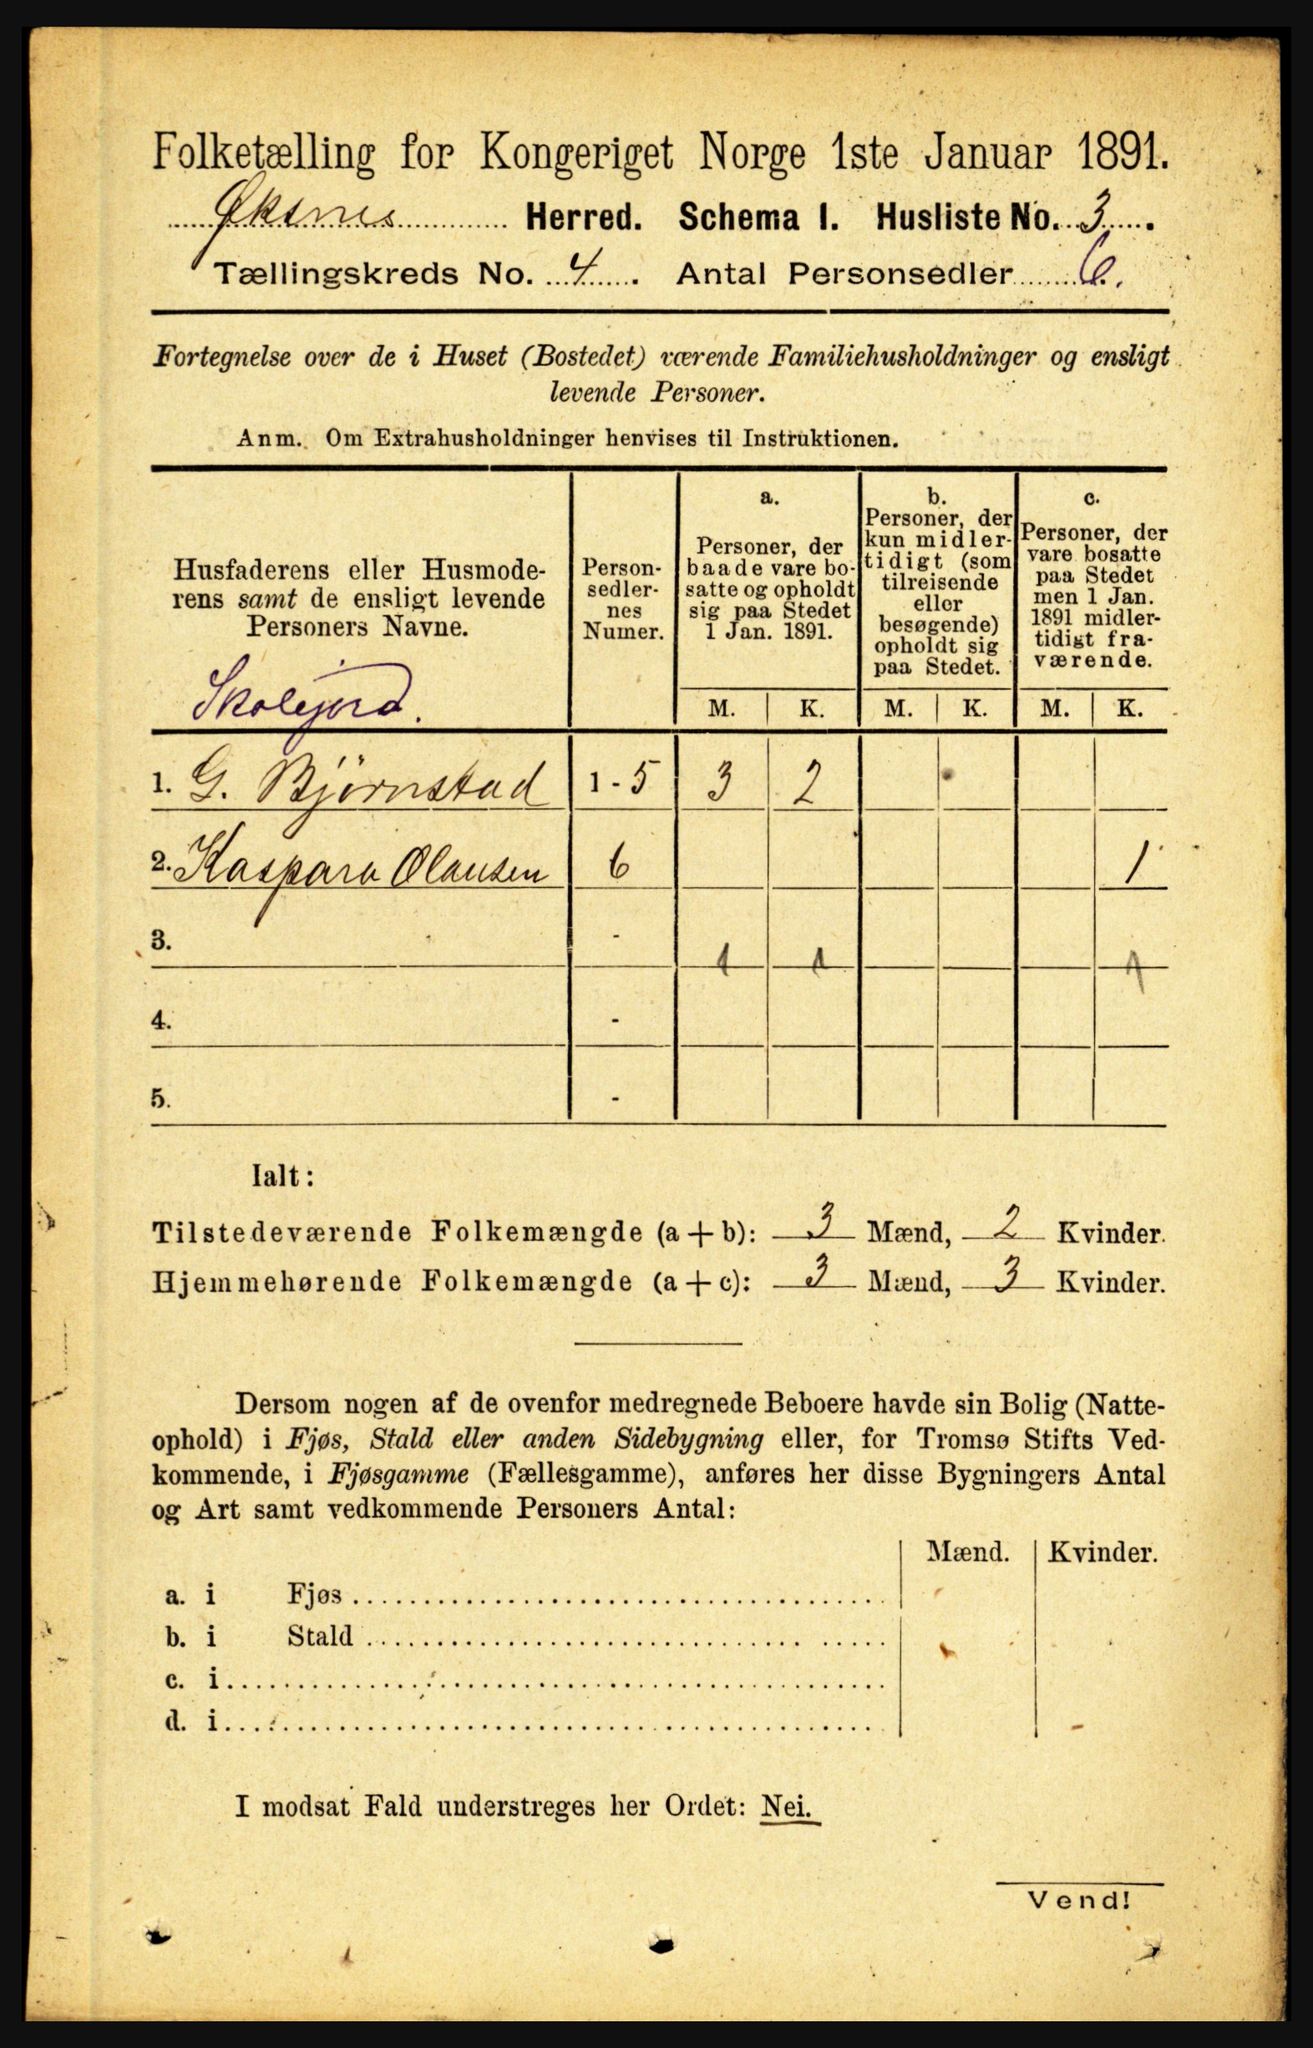 Folketælling for Kongeriget Norge 1ste Januar 1891.
Øksnes Herred. Schema I. Husliste No. 3.
Tællingskreds No. 4. Antal Personsedler 6.
Fortegnelse over de i Huset (Bostedet) værende Familiehusholdninger og ensligt
levende Personer.
Anm. Om Extrahusholdninger henvises til Instruktionen.
Husfaderens eller Husmode-
rens samt de ensligt levende
Personers Navne.
Skolejord.
Person-
sedler-
nes
Numer.
a.
Personer, der
baade vare bo-
satte og opholdt
sig paa Stedet
1 Jan. 1891.
b.
Personer, der
kun midler-
tidigt (som
tilreisende
eller
besøgende)
opholdt sig
paa Stedet.
c.
Personer, der
vare bosatte
paa Stedet
men 1 Jan.
1891 midler-
tidigt fra-
værende.
M. K. M. K. M. K.
1. G. Bjørnstad 1-5 3 2
2. Kaspara Olausen 6 1
3. - 1 1 1
4. -
5. -
Ialt:
Tilstedeværende Folkemængde (a + b): 3 Mænd, 2 Kvinder.
Hjemmehørende Folkemængde (a + c): 3 Mænd, 3 Kvinder.
Dersom nogen af de ovenfor medregnede Beboere havde sin Bolig (Natte-
ophold) i Fjøs, Stald eller anden Sidebygning eller, for Tromsø Stifts Ved-
kommende, i Fjøsgamme (Fællesgamme), anføres her disse Bygningers Antal
og Art samt vedkommende Personers Antal:
Mænd. Kvinder.
a. i Fjøs
b. i Stald
c. i
d. i
I modsat Fald understreges her Ordet: Nei.
Vend!